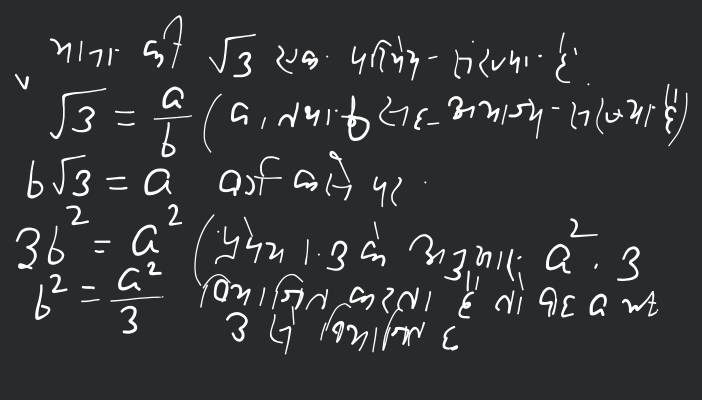 माना की √3 एक परिमेय संख्या है
√3 = a/b (a, तथा b सह-अभाज्य-संख्या है)
b√3 = a वर्ग करने पर
3b² = a² (प्रमेय 1.3 के अनुसार a². 3
b² = a²/3 विभाजित करता है तो वह a को
3 से विभाजित है